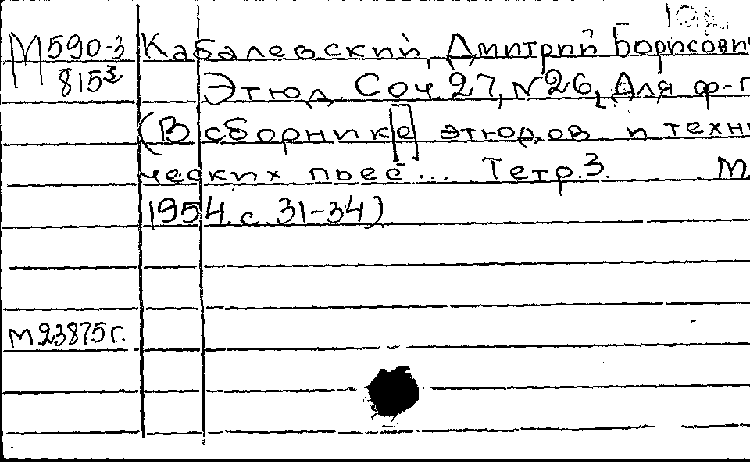 М590-3 Кабалевский, Дмитрий Борисови
815³ Этюд Соч 27, №26, Для ф-п
(В сборнике этюдов и техни
ческих пьес... Тетр.3. М.
1954. с. 31-34)
М23875г.